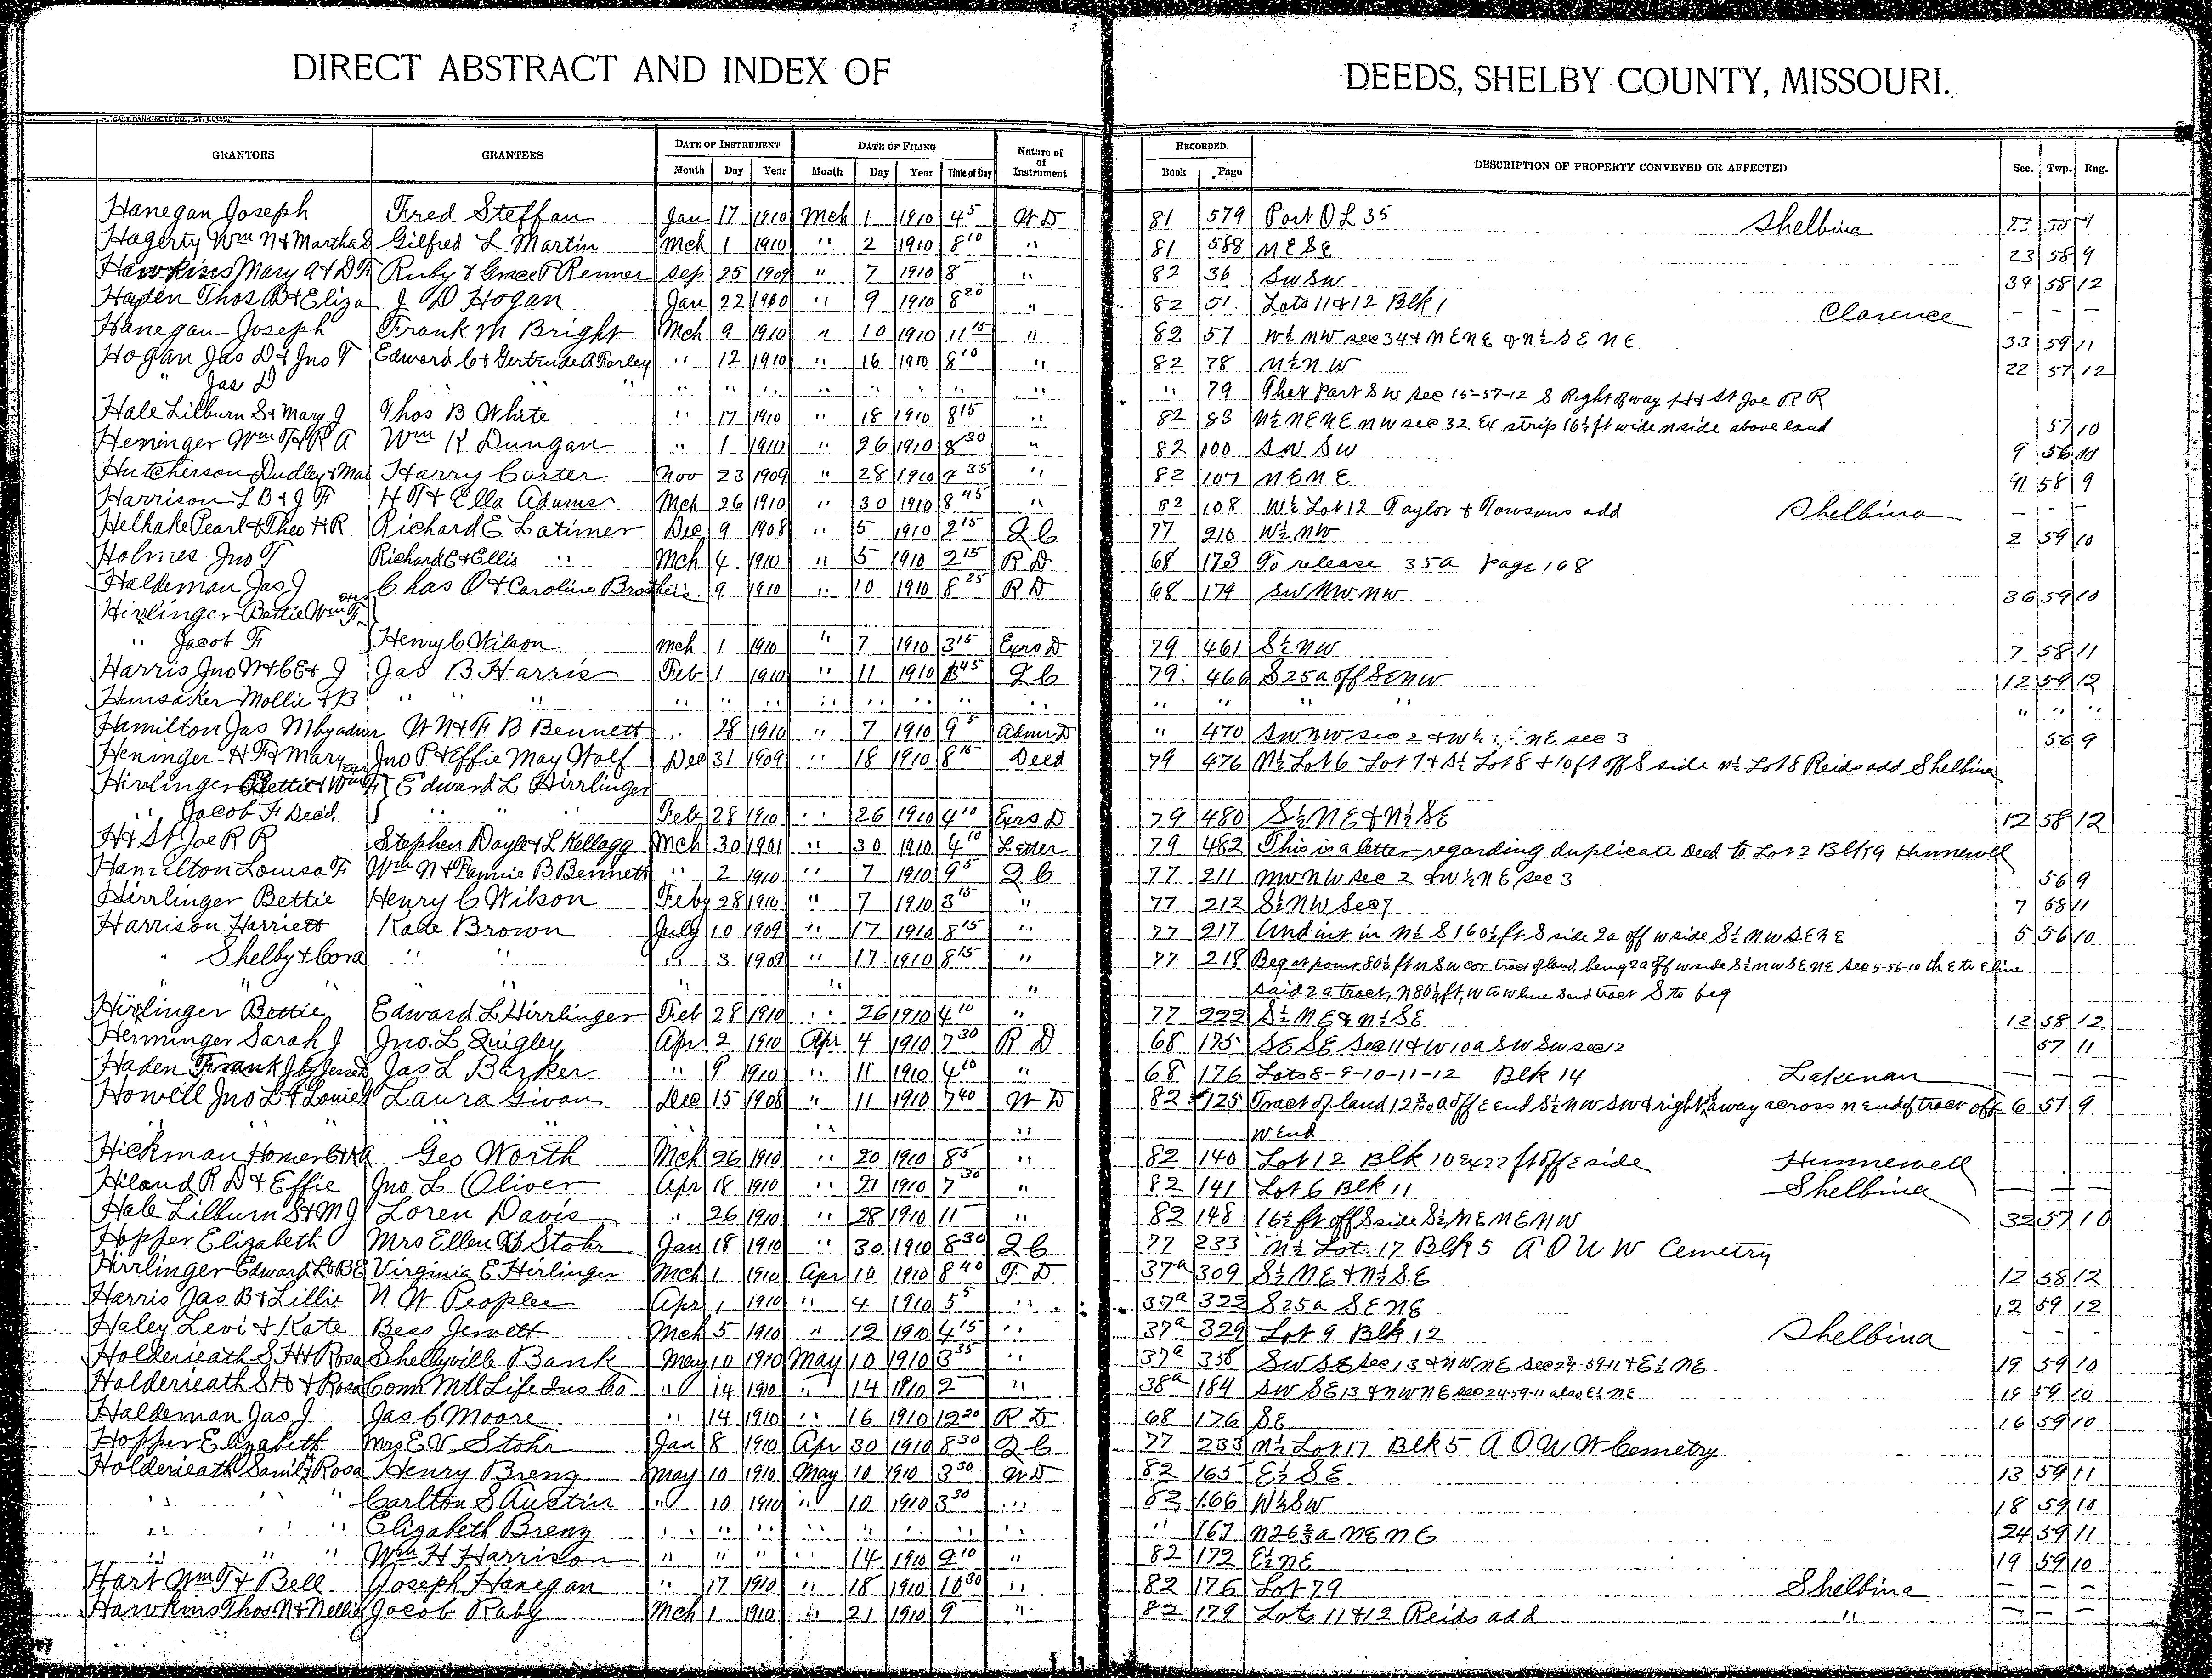 DIRECT ABSTRACT AND INDEX OF DEEDS, SHELBY COUNTY, MISSOURI.
GRANTORS GRANTEES DATE OF INSTRUMENT DATE OF FILING Nature of Instrument RECORDED DESCRIPTION OF PROPERTY CONVEYED OR AFFECTED Sec. Twp. Rng.
Month Day Year Month Day Year Time of Day Book Page
Hanegan Joseph Fred Steffan Jan 17 1910 Mch 1 1910 4 5 W D 81 579 Part O L 35 Shelbina
Hagerty Wm N & Martha S Gilfred L Martin Mch 1 1910 " 2 1910 8 10 " 81 588 N E S E 23 58 9
Hawkins Mary A & D F Ruby & Grace P Renner Sep 25 1909 " 7 1910 8 " 82 36 SW SW 34 58 12
Hayden Thos B & Eliza J D Hogan Jan 22 1910 " 9 1910 8 20 " 82 51 Lots 11 & 12 Blk 1 Clarence - - -
Hanegan Joseph Frank M Bright Mch 9 1910 " 10 1910 11 15 " 82 57 W½ NW sec 34 & N E N E & N½ S E N E 33 59 11
Hogan Jas D & Jno T Edward C & Gertrude A Farley " 12 1910 " 16 1910 8 10 " 82 78 N½ N W 22 57 12
" Jas D " " " " " " " " " " " 79 That Part S W sec 15-57-12 S Right of way H & St Joe R R
Hale Lilburn S & Mary J Thos B White " 17 1910 " 18 1910 8 15 " 82 83 N½ N E N E N W sec 32 Ex strip 16½ ft wide N side above land 57 10
Heninger Wm F & R A Wm K Dungan " 1 1910 " 26 1910 8 30 " 82 100 SW SW 9 56
Hutcherson Dudley & Mai Harry Carter Nov 23 1909 " 28 1910 4 35 " 82 107 N E N E 58 9
Harrison L B & J F H T & Ella Adams Mch 26 1910 " 30 1910 8 45 " 82 108 W½ Lot 12 Taylor & Towsons add Shelbina - - -
Helhake Pearl & Theo H R Richard E Latimer Dec 9 1908 " 5 1910 2 15 Q C 77 210 W½ NW 2 59 10
Holmes Jno T Richard E & Ellis " Mch 4 1910 " 5 1910 2 15 R D 68 173 To release 35a page 168
Haldeman Jas J Chas O & Caroline Brothers " 9 1910 " 10 1910 8 25 R D 68 174 SW NW NW 36 59 10
Hirrlinger Bettie Wm F Exrs
" Jacob F Henry C Wilson Mch 1 1910 " 7 1910 3 15 Exrs D 79 461 S½ NW 7 58 11
Harris Jno W & C E & J Jas B Harris Feb 1 1910 " 11 1910 45 Q C 79 466 S 25a off S E N W 12 59 12
Hunsaker Mollie & B " " " " " " " " " " " " " " " " " "
Hamilton Jas M by admr W N & F B Bennett " 28 1910 " 7 1910 9 5 Admr D " 470 SW NW sec 2 & W½ NE sec 3 56 9
Heninger H F & Mary Jno P & Effie May Wolf Dec 31 1909 " 18 1910 8 15 Deed 79 476 N½ Lot 6 Lot 7 & S½ Lot 8 & 10 ft off S side N½ Lot 8 Reids add Shelbina
Hirrlinger Bettie & Wm F Exrs Edward L Hirrlinger
" Jacob F Dec'd. " " " Feb 28 1910 " 26 1910 4 10 Exrs D 79 480 S½ N E & N½ S E 12 58 12
H & St Joe R R Stephen Doyle & L Kellogg Mch 30 1901 " 30 1910 4 10 Letter 79 482 This is a letter regarding duplicate Deed to Lot 2 Blk 9 Hunnewell
Hamilton Louisa F Wm N & Fannie B Bennett " 2 1910 " 7 1910 9 5 Q C 77 211 NW NW sec 2 & W½ N E sec 3 56 9
Hirrlinger Bettie Henry C Wilson Feby 28 1910 " 7 1910 3 15 " 77 212 S½ NW Sec 7 7 58 11
Harrison Harriett Kate Brown July 10 1909 " 17 1910 8 15 " 77 217 Und int in N½ S 160½ ft S side 2a off W side S½ N W S E N E 5 56 10
" Shelby & Cora " " " 3 1909 " 17 1910 8 15 " 77 218 Beg at point 80½ ft N SW cor tract of land, being 2a off W side S½ N W S E N E sec 5-56-10 th E to E line
" " " " " " said 2a tract, N 80½ ft, W to W line said tract S to beg
Hirrlinger Bettie Edward L Hirrlinger Feb 28 1910 " 26 1910 4 10 " 77 222 S½ N E & N½ S E 12 58 12
Henninger Sarah J Jno. L Quigley Apr 2 1910 Apr 4 1910 7 30 R D 68 175 S E S E Sec 11 & W 10a SW SW sec 12 57 11
Haden Frank J Jas L Barker " 9 1910 " 11 1910 4 20 " 68 176 Lots 8-9-10-11-12 Blk 14 Lakenan - - -
Howell Jno L & Louie Laura Givan Dec 15 1908 " 11 1910 7 40 W D 82 125 Tract of land off E end S½ NW SW & right of way across N end of tract off 6 57 9
" " " " W End
Hickman Homer C & A Geo Worth Mch 26 1910 " 20 1910 8 5 " 82 140 Lot 12 Blk 10 ex 22 ft off E side Hunnewell - - -
Hiland R D & Effie Jno L Oliver Apr 18 1910 " 21 1910 7 30 " 82 141 Lot 6 Blk 11 Shelbina - - -
Hale Lilburn S & M J Loren Davis " 26 1910 " 28 1910 11 " 82 148 16½ ft off S side S½ N E N E N W 32 57 10
Hopper Elizabeth Mrs Ellen Stohr Jan 18 1910 " 30 1910 8 30 Q C 77 233 N½ Lot 17 Blk 5 A O U W Cemetry
Hirrlinger Edward L & B E Virginia E Hirlinger Mch 1 1910 Apr 1910 8 40 T D 37a 309 S½ N E & N½ S E 12 58 12
Harris Jas B & Lillie N W Peoples Apr 1 1910 " 4 1910 5 5 " 37a 322 S 25a S E N E 12 59 12
Haley Levi & Kate Bess Jewett Mch 5 1910 " 12 1910 4 15 " 37a 329 Lot 9 Blk 12 Shelbina - - -
Holderieath S H & Rosa Shelbyville Bank May 10 1910 May 10 1910 3 35 " 37a 358 SW SE Sec 13 & N W N E Sec 24-59-11 & E½ N E 19 59 10
Holderieath S H & Rosa Conn Mtl Life Ins Co " 14 1910 " 14 1910 2 " 38a 184 SW SE 13 & N W N E sec 24-59-11 also E½ N E 19 59 10
Haldeman Jas J Jas C Moore " 14 1910 " 16 1910 12 20 R D 68 176 S E 16 59 10
Hopper Elizabeth Mrs E V Stohr Jan 8 1910 Apr 30 1910 8 30 Q C 77 233 N½ Lot 17 Blk 5 A O U W Cemetry
Holderieath Saml & Rosa Henry Breng May 10 1910 May 10 1910 3 30 W D 82 165 E½ S E 13 59 11
" " " Carlton S Austin " 10 1910 " 10 1910 3 30 " 82 166 W½ SW 18 59 10
" " " Elizabeth Breng " " " " " " " " " 167 N 26⅔a N E N E 24 59 11
" " " Wm H Harrison " " " " 14 1910 2 10 " 82 172 E½ N E 19 59 10
Hart Wm T & Bell Joseph Hanegan " 17 1910 " 18 1910 10 30 " 82 176 Lot 79 Shelbina - - -
Hawkins Thos N & Nellie Jacob Raby Mch 1 1910 " 21 1910 9 " 82 179 Lots 11 & 12 Reids add " - - -